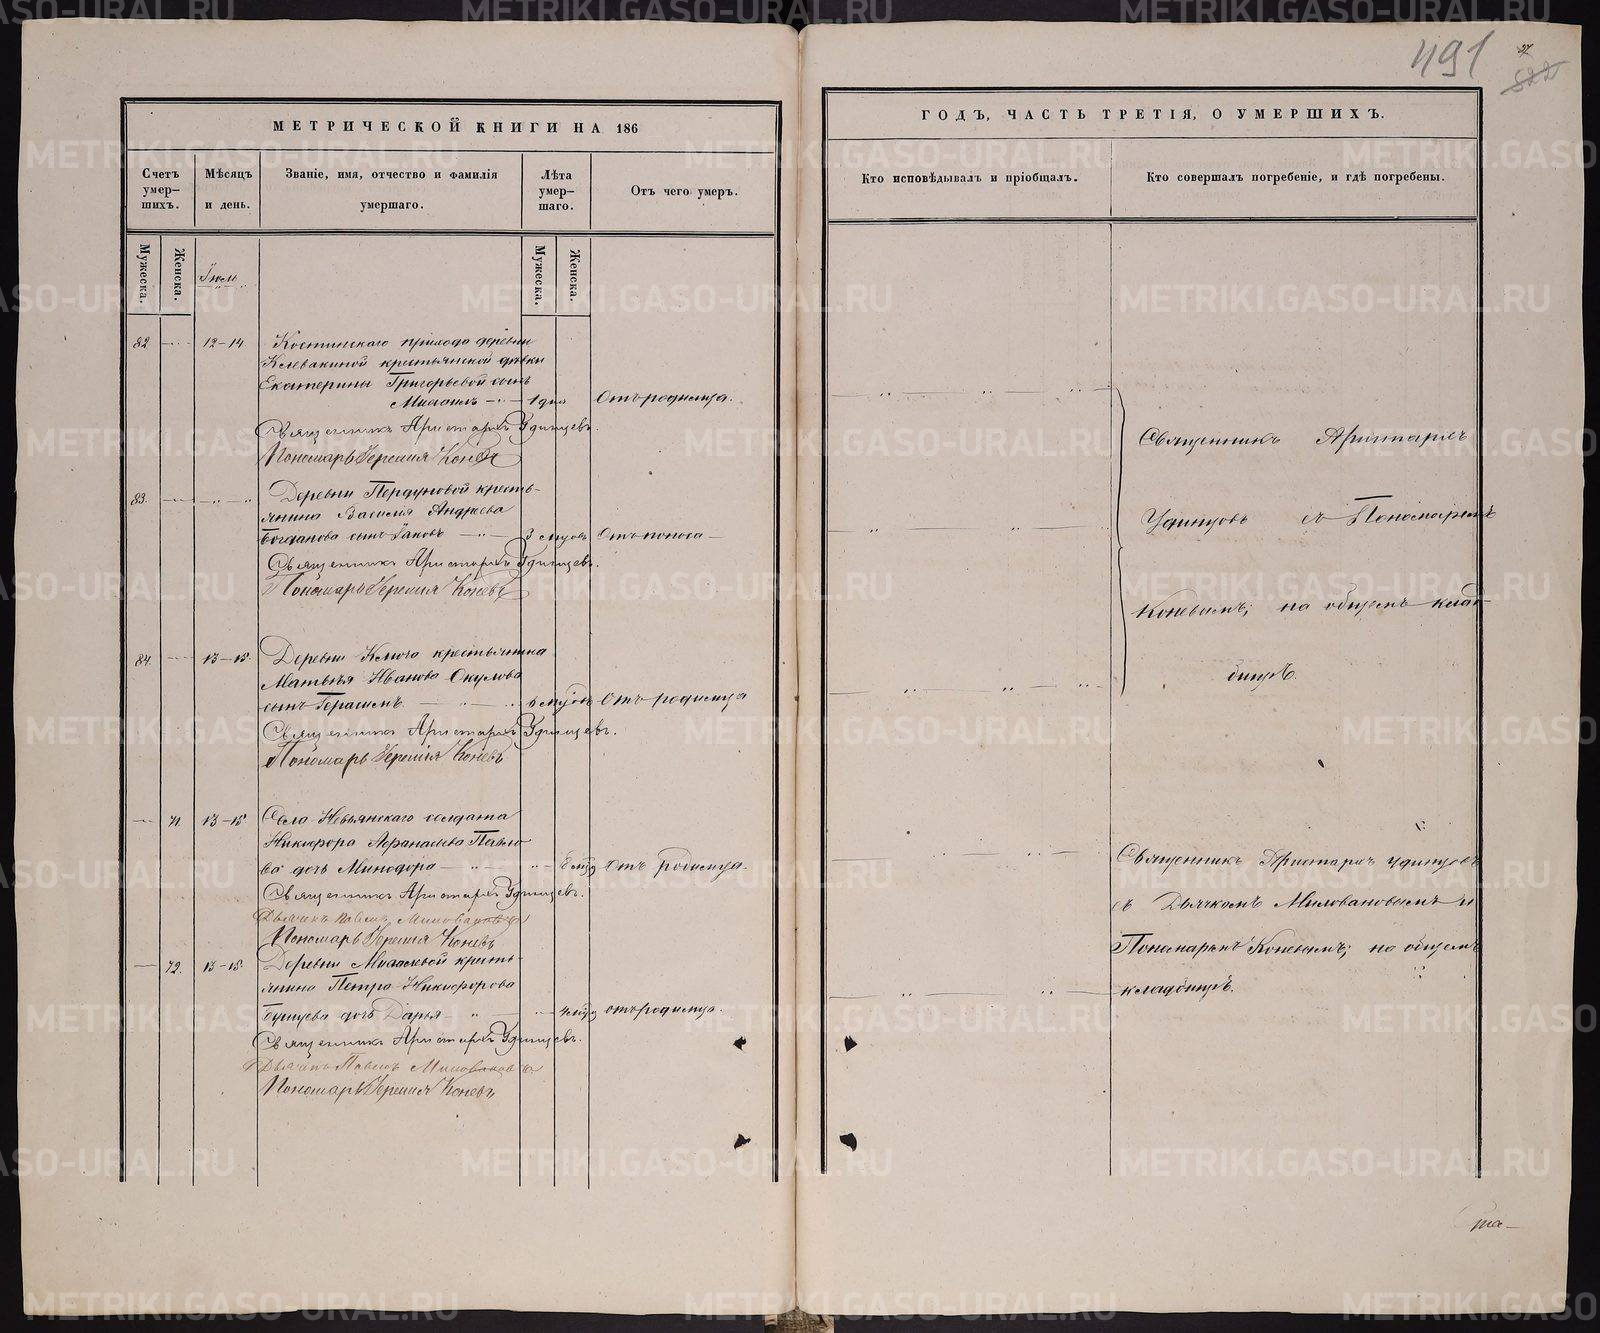 491
МЕТРИЧЕСКОЙ КНИГИ НА 186
ГОДЪ, ЧАСТЬ ТРЕТІЯ, О УМЕРШИХЪ.
Счетъ умер-шихъ.
Мѣсяцъ и день.
Званіе, имя, отчество и фамилія умершаго.
Лѣта умер-шаго.
Отъ чего умеръ.
Кто исповѣдывалъ и пріобщалъ.
Кто совершалъ погребеніе, и гдѣ погребены.
Мужеска.
Женска.
Мужеска.
Женска.
Іюль
82 12-14 Костинскаго прихода деревни
Клевакиной крестьянской дѣвки
Екатерины Григорьевой сынъ
1 дня Отъ родимца.
Священникъ Аристархъ Удинцевъ.
Пономарь Іеремія Коневъ
83. Деревни Пердуновой кресть-
янина Василія Андреева
Богданова сынъ Іаковъ 3 Отъ поноса
Священникъ Аристархъ Удинцевъ.
Пономарь Іеремія Коневъ
84. 13-15 Деревни Ключа крестьянина
Матвѣя Иванова Окулова
сынъ Герасимъ Отъ родимца
Священникъ Аристархъ Удинцевъ.
Пономарь Іеремія Коневъ
71. 13-15 Села Невьянскаго солдата
Никифора Афанасьева Павло
ва дочь Минодора Отъ родимца.
Священникъ Аристархъ Удинцевъ.
Дьячекъ Павелъ Миловановъ
Пономарь Іеремія Коневъ
72. 13-15 Деревни кресть-
янина Петра Никифорова
дочь Дарья отъ родимца.
Священникъ Аристархъ Удинцевъ.
Дьячекъ Павелъ Миловановъ
Пономарь Іеремія Коневъ
Священникъ Аристархъ
Удинцовъ съ Пономаремъ
Коневымъ; на общемъ клад-
бищѣ.
Священникъ Аристархъ Удинцовъ
съ Дьячкомъ Миловановымъ и
Пономаремъ Коневымъ; на общемъ
кладбищѣ.
METRIKI.GASO-URAL.RU